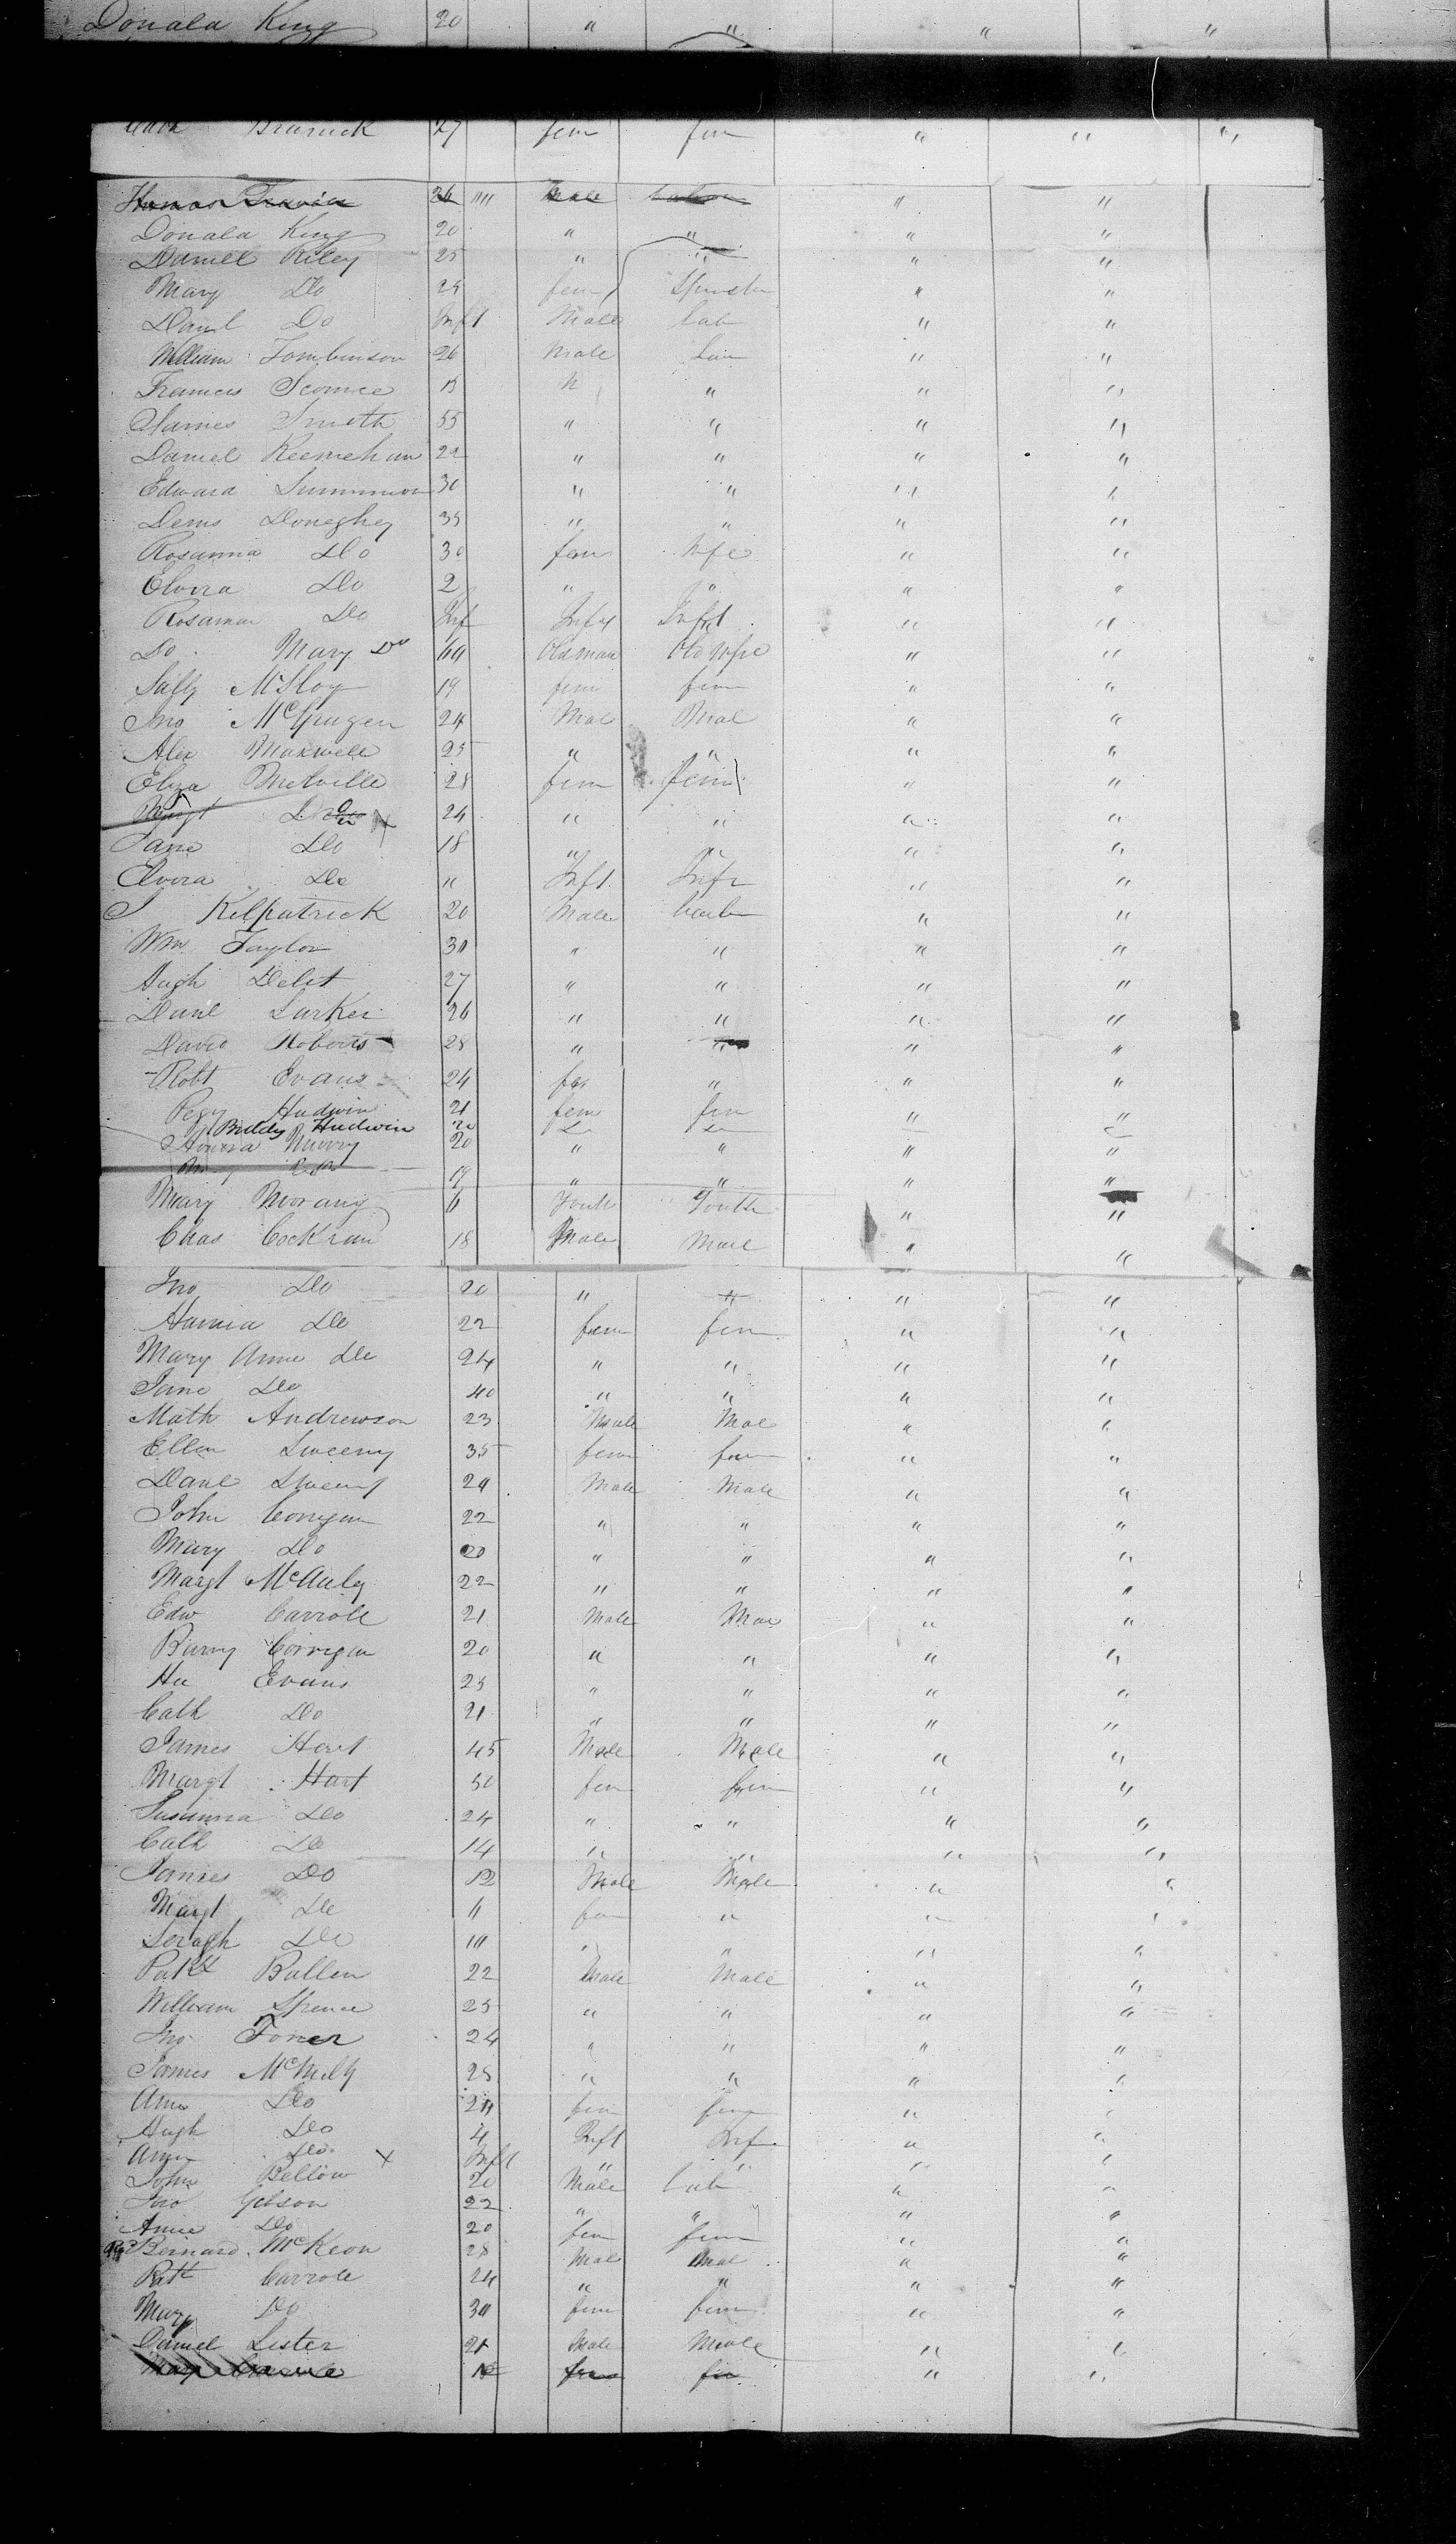 Donala King 20 " " " "
Brannick 27 fem fem " " "
26 "" Male " "
Donala King 20 " " " "
Daniell Riley 25 " " " "
Mary Do 25 fem Spinster " "
Danl Do Inft Male Lab " "
William Tomlinson 26 Male Lab " "
Frances 15 " " " "
James Smith 55 " " " "
Daniel Keenehan 22 " " " "
Edward 30 " " " "
Denis Doneghey 35 " " " "
Rosanna Do 30 fem Wife " "
Elvira Do 2 " " " "
Rosanna Do Inf Inft Inft " "
Do Mary Do Old man Old Wife " "
Sally McIloy 19 fem fem " "
Jno McGrugen 24 Mal Mal " "
Alex Maxwell 25 " " " "
Eliza Melville 28 fem fem " "
Margt Do 24 " " " "
Jane Do 18 " " " "
Elvira Do " Inft Inft " "
J Kilpatrick 20 Male Carb " "
Wm Taylor 30 " " " "
Hugh Delet 27 " " " "
Danl Larker 26 " " " "
David Roberts 28 " " " "
Robt Evans 24 " " "
Pegy Hudwin 21 fem fem " "
Biddy Hudwin 20
Murry 20 " " " "
19 " " " "
Mary Morang 6 Youth Youth " "
Chas Cockran 18 Male Male " "
Jno Do 20 " " " "
Do 22 fem fem " "
Mary Anne Do 24 " " " "
Jane Do 40 " " " "
Math Andrewson 23 Male Mal " "
Ellen Sweeny 35 fem fem " "
Danl Sweeny 24 Male Male " "
John Corrigan 22 " " " "
Mary Do 20 " " " "
Margt McAuley 22 " " " "
Edw Carroll 21 Male Male " "
Barny Corrigan 20 " " " "
Hu Evans 25 " " " "
Cath Do 21 " " " "
James Hart 45 Male Male " "
Margt Hart 50 fem fem " "
Susanna Do 24 " " " "
Cath Do 14 " " " "
James Do 12 Male Male " "
Margt Do 11 fem " " "
Do 10 " " " "
Patk Bullen 22 Male Male " "
William Spence 25 " " " "
Jno Toner 24 " " " "
James McNelly 25 " " " "
Ann Do 24 fem fem " "
Hugh Do 4 Inft Inf " "
Ann Do X Inft " " " "
John Bellow 20 Male Lab " "
Jno Gibson 22 " " " "
Anne Do 20 fem fem " "
Bernard McKeon 28 Mal Mal " "
Patk Carroll 24 " " " "
Mary Do 30 fem fem " "
Daniel Lister 21 Male Male " "
Mary fem fem " "